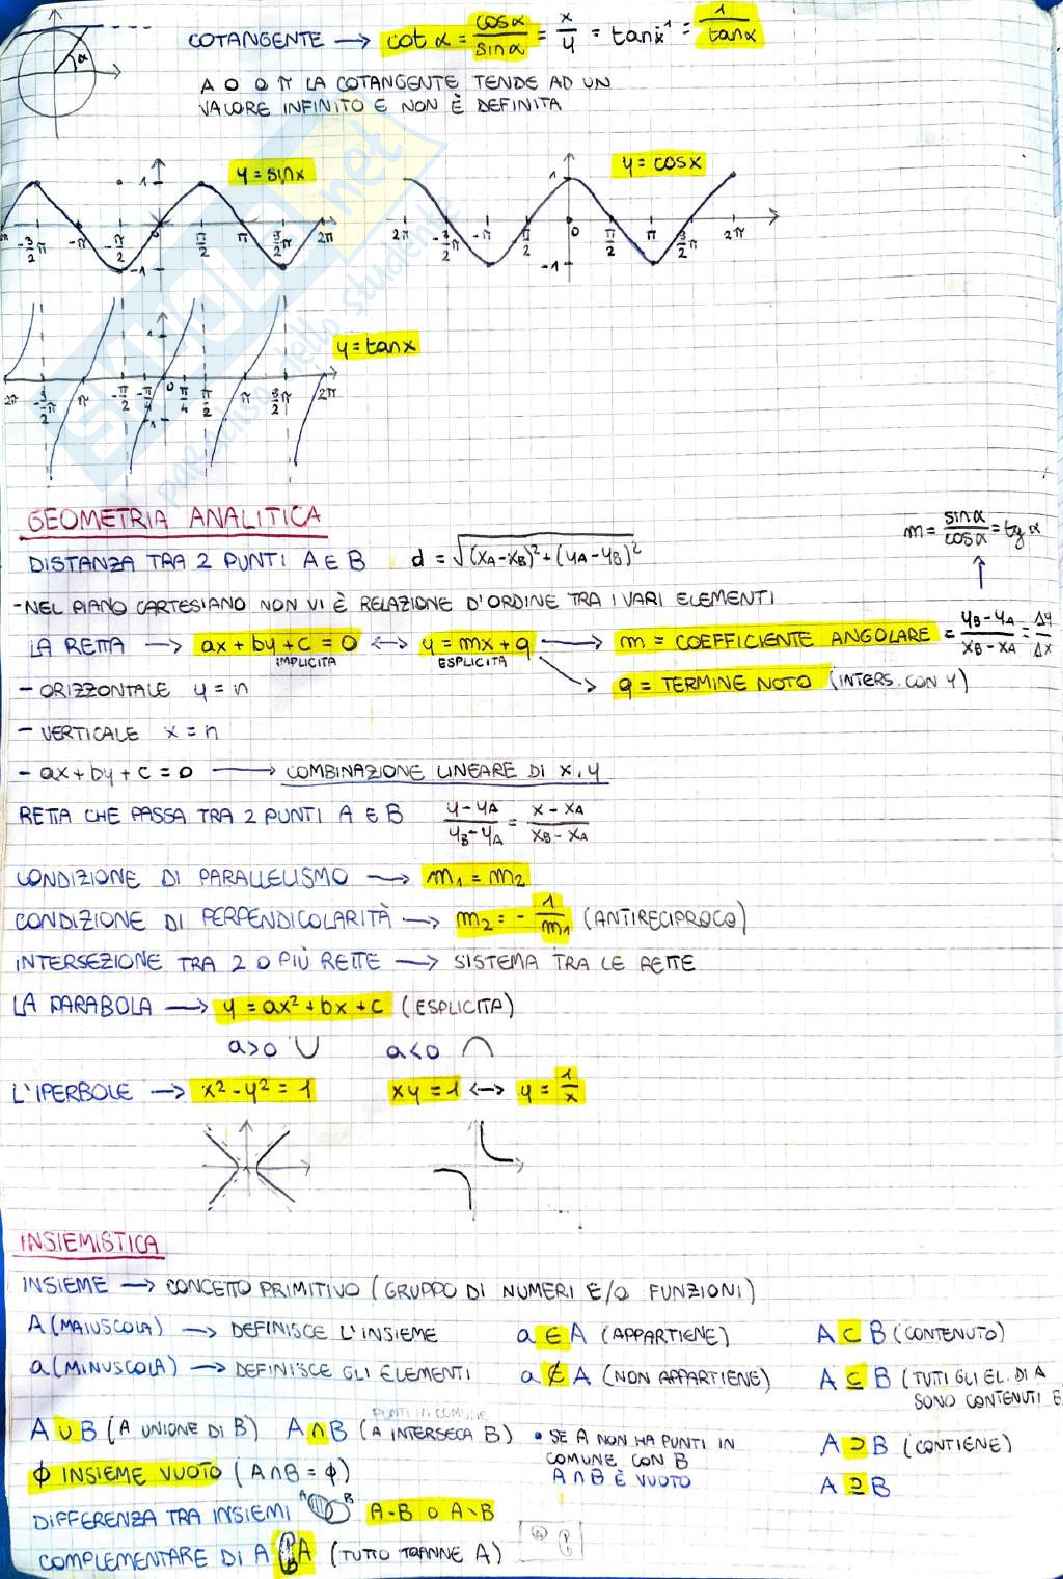 COTANGENTE → cot α = cosα/sinα = x/y = tanα⁻¹ = 1/tanα
α
A 0 O π LA COTANGENTE TENDE AD UN
VALORE INFINITO E NON È DEFINITA
y = sinx
y = cosx
1
-3/2π -π -π/2 0 π/2 π 3/2π 2π
-1
1
2π -3/2π -π π/2 0 π/2 π 3/2π 2π
-1
y = tanx
1
2π -3/2π π -π/2 -π/4 0 π/4 π/2 π 3/2π 2π
-1
GEOMETRIA ANALITICA
m = sinα/cosα = tgα
DISTANZA TRA 2 PUNTI A E B d = √(xA-xB)²+(yA-yB)²
-NEL PIANO CARTESIANO NON VI È RELAZIONE D'ORDINE TRA I VARI ELEMENTI
LA RETTA → ax+by+c=0 ↔ y=mx+q → m = COEFFICIENTE ANGOLARE = yB-yA/xB-xA = Δy/Δx
IMPLICITA ESPLICITA
- ORIZZONTALE y = n → q = TERMINE NOTO (INTERS. CON Y)
- VERTICALE x = n
- ax+by+c=0 → COMBINAZIONE LINEARE DI x,y
RETTA CHE PASSA TRA 2 PUNTI A E B y-yA/yB-yA = x-xA/xB-xA
CONDIZIONE DI PARALLELISMO → m₁ = m₂
CONDIZIONE DI PERPENDICOLARITÀ → m₂ = -1/m₁ (ANTIRECIPROCO)
INTERSEZIONE TRA 2 O PIÙ RETTE → SISTEMA TRA LE RETTE
LA PARABOLA → y = ax²+bx+c (ESPLICITA)
a>0 ∪ a<0 ∩
L'IPERBOLE → x²-y²=1 xy=1 ↔ y=1/x
INSIEMISTICA
INSIEME → CONCETTO PRIMITIVO (GRUPPO DI NUMERI E/O FUNZIONI)
A (MAIUSCOLA) → DEFINISCE L'INSIEME a ∈ A (APPARTIENE) A ⊂ B (CONTENUTO)
a (MINUSCOLA) → DEFINISCE GLI ELEMENTI a ∉ A (NON APPARTIENE) A ⊆ B (TUTI GLI EL. DI A
SONO CONTENUTI
PUNTI IN COMUNE
A ∪ B (A UNIONE DI B) A ∩ B (A INTERSECA B) • SE A NON HA PUNTI IN
COMUNE CON B
A ∩ B È VUOTO
A ⊃ B (CONTIENE)
A ⊇ B
ϕ INSIEME VUOTO (A∩B = ϕ)
DIFFERENZA TRA INSIEMI A B A-B O A\B
COMPLEMENTARE DI A ∁A (TUTTO TRANNE A)